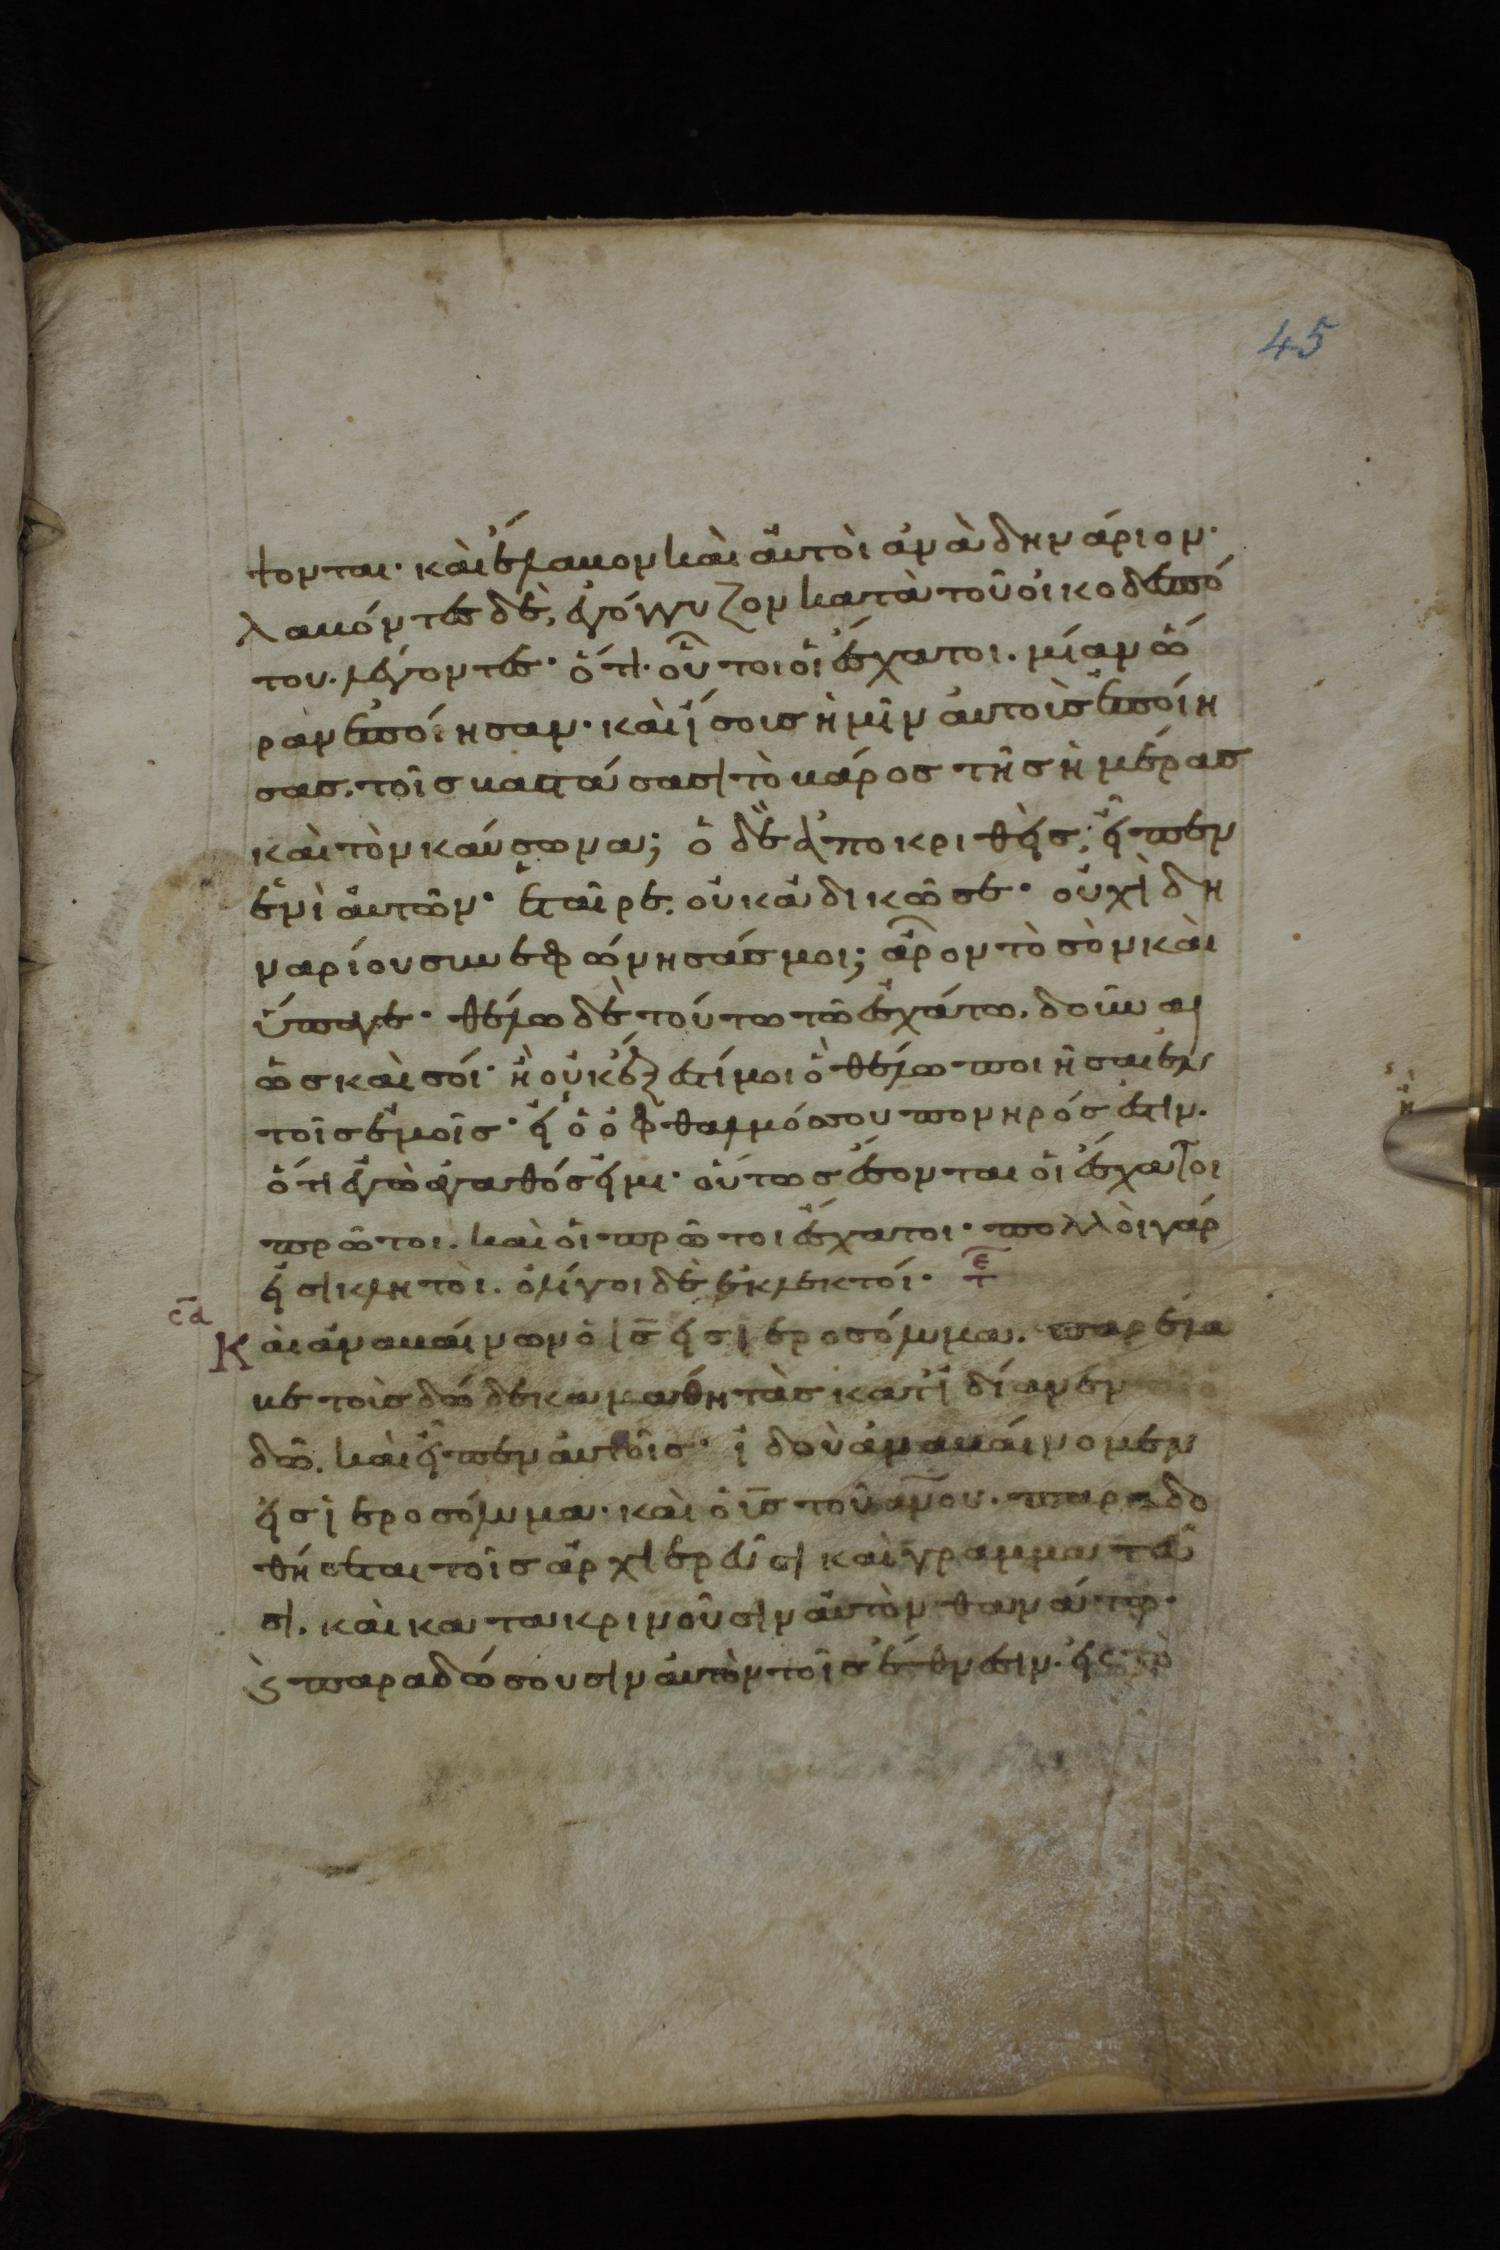 45
ψονται· καὶ ἔλαβον καὶ αὐτοὶ ἀνὰ δηνάριον·
λαβόντες δὲ, ἐγόγγυζον κατὰ τοῦ οἰκοδεσπό
του. λέγοντες· ὅτι οὗτοι οἱ ἔσχατοι. μίαν ὥ
ραν ἐποίησαν· καὶ ἴσοις ἡμῖν αὐτοὺς ἐποίη
σας. τοῖς βαστάσασι τὸ βάρος τῆς ἡμέρας
καὶ τὸν καύσωνα; ὁ δὲ ἀποκριθεὶς, εἶπεν
ἑνὶ αὐτῶν· ἑταῖρε. οὐκ ἀδικῶ σε· οὐχὶ δη
ναρίου συνεφώνησάς μοι; ἆρον τὸ σὸν καὶ
ὕπαγε· θέλω δὲ τούτω τῶ ἐσχάτω. δοῦναι
ὡς καὶ σοί· ἢ οὐκ ἔξεστί μοι ὃ θέλω ποιῆσαι ἐν
τοῖς ἐμοῖς· εἰ ὁ ὀφθαλμός σου πονηρός ἐστιν.
ὅτι ἐγὼ ἀγαθός εἰμι· οὕτως ἔσονται οἱ ἔσχατοι
πρῶτοι. καὶ οἱ πρῶτοι ἔσχατοι· πολλοὶ γάρ
εἰσι κλητοὶ. ὀλίγοι δὲ ἐκλεκτοί· τε
σα
Καὶ ἀναβαίνων ὁ ι̅ς̅ εἰς ἱεροσόλυμα. παρέλα
βε τοὺς δώδεκα μαθητὰς κατ' ἰδίαν ἐν
δῶ. καὶ εἶπεν αὐτοῖς· ἰδοὺ ἀναβαίνομεν
εἰς ἱεροσόλυμα· καὶ ὁ υ̅ς̅ τοῦ α̅ν̅ο̅υ̅. παραδο
θήσεται τοῖς ἀρχιερεῦσι καὶ γραμματεῦ
σι. καὶ κατακρινοῦσιν αὐτὸν θανάτω·
ϗ παραδώσουσιν αὐτὸν τοῖς ἔθνεσιν. εἰς τὸ